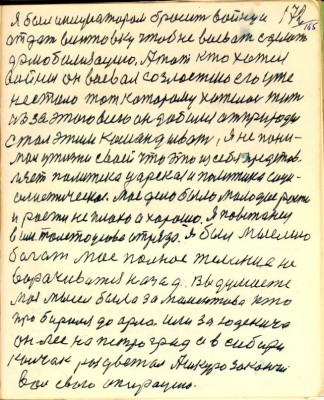 178
165
Я был инициатором бросит войну и
отдат винтовку чтоб не воевать сделать
демобилизацию. А тот кто хотел
войны он воевал со злостью его уже
не стало тот которому хотелось жить
из за этого всего он добился от природы
стал этим командывать, я не пони-
мал ут что своей что это из себя представ-
ляет политека царская и политика соци-
алистическая. Мое дело было молодое рости
и рости не плохо а хорошо. Я попытаюсь
в им Толстоухова отряд. Я был мыслью
богат мое полное желание не
ворачиватся назад. Вы думаете
моя мысел была за мамонтова кто
пробирался до арла или за юденича
он лез на петроград а в сибири
колчак рызцветал Я скоро закончил
вам свого операцию.